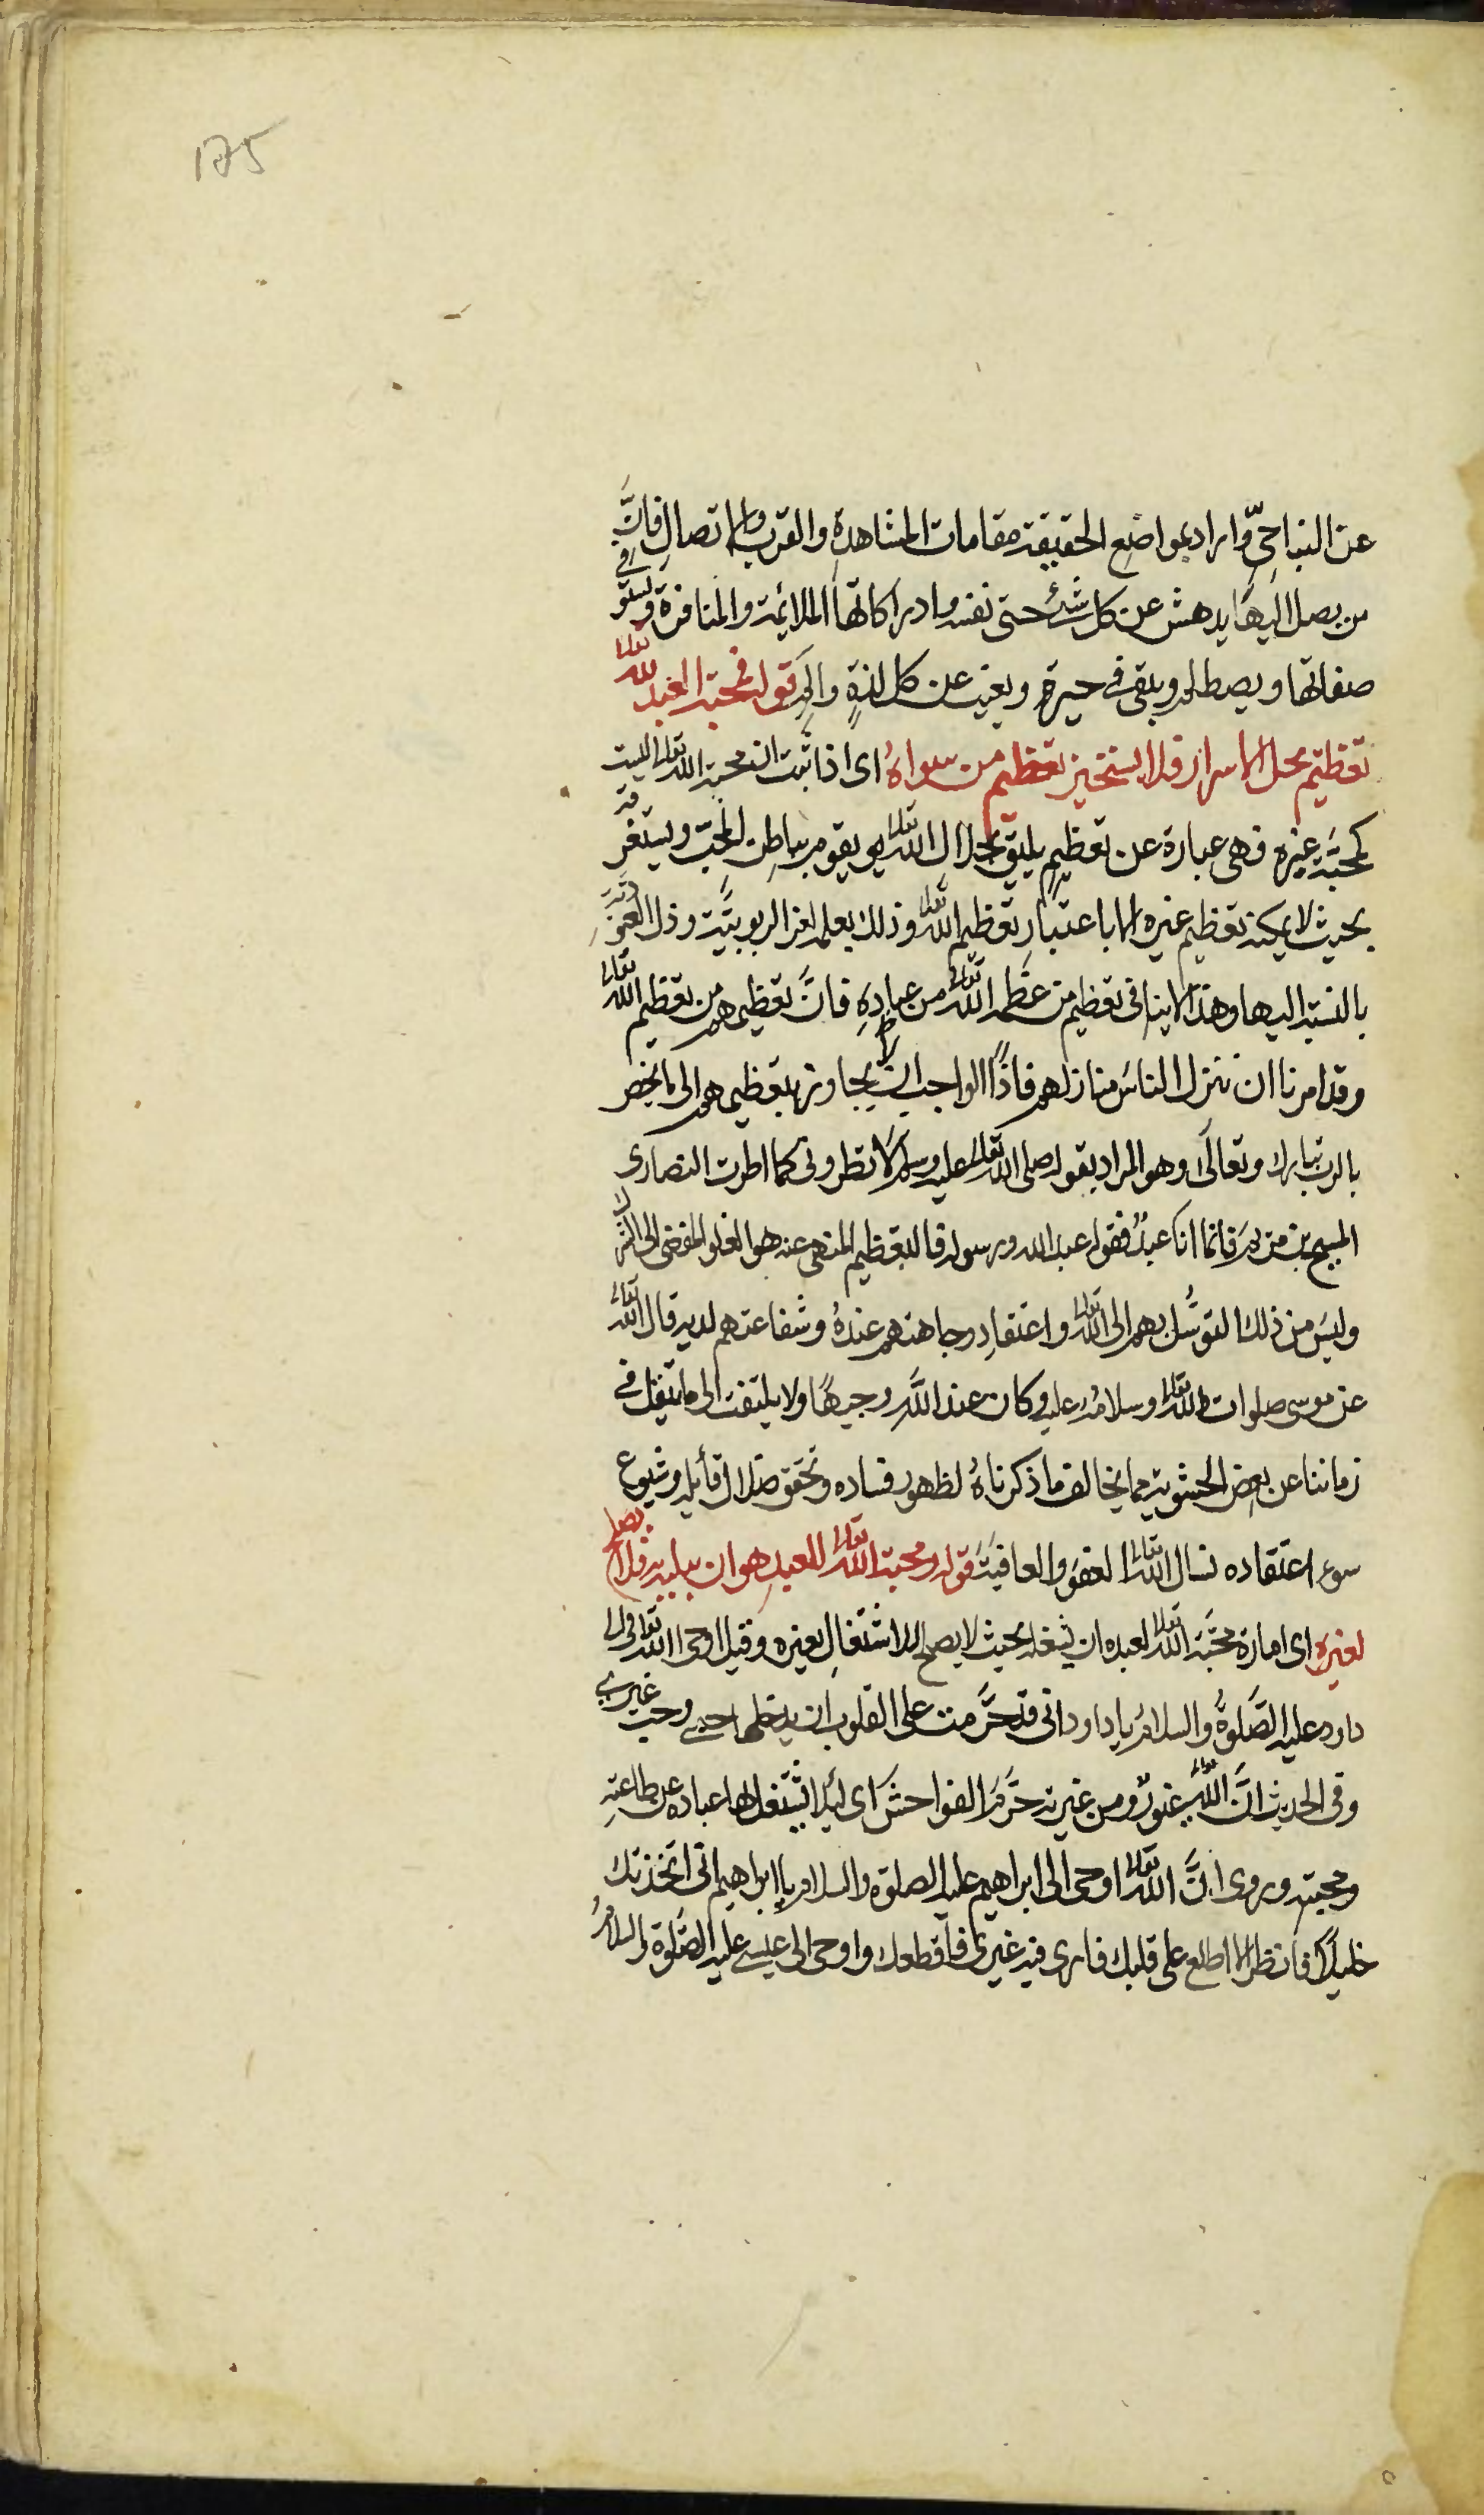 175
عن النباجىّ واراد بمواضع الحقيقة مقامات المشاهدة والقرب والاتصال فانّ
من يصل اليها يدهش عن كل شئ حتى نفسه وادراكاتها الملائمة والمنافرة ويستوفى
صفاتها ويصطلمه ويبقى فى حيرة ويغيب عن كل لذةٍ والمٍ قوله فمحبة العبد لله تعالى
تعظيم يحل الاسرار فلا يستجيز تعظيم من سواهُ اى اذا ثبت ان محبة الله تعالى ليست
كمحبّة غيره فهى عبارة عن تعظيم يليق بجلال الله تعالى يقوم بباطن المحبّ ويستغرقه
بحيث لا يمكنه تعظيم غيره الا باعتبار تعظيم الله تعالى وذلك بعلمه لعز الربوبيّة وذل العبودية
بالنسبة اليها وهذا لا ينافى تعظيم من عظّمه الله تعالى من عبادهِ فانّ تعظيمهم من تعظيم الله تعالى
وقد امرنا ان ننزل الناسَ منازلهم فاذًا الواجب ان لا يجاوز بتعظيمهم الى ما يختص
بالرب تبارك وتعالى وهو المراد بقوله صلى الله تعالى عليه وسلم لا تطرونى كما اطرت النصارى
المسيح بن مريم فانما انا عبدٌ فقولوا عبد الله ورسوله فالتعظيم المنهى عنه هو الغلو المفضى الى الشرك
وليس من ذلك التوسُّل بهم الى الله تعالى واعتقادِ وجاهتهم عندهُ وشفاعتهم لديه قال الله تعالى
عن موسى صلوات الله تعالى وسلامه عليه وكان عند اللهِ وجيهًا ولا يلتفت الى ما ينقل فى
زماننا عن بعض الحشوية مما يخالف ما ذكرناهُ لظهور فساده وتحقق ضلال قائله وشيوع
سوء اعتقاده نسال الله تعالى العفو والعافيةَ قوله ومحبة الله تعالى للعبد هو ان يبليه فلا يصلح
لغيره اى امارة محبّة الله تعالى لعبده ان يشغله بحيث لا يصلح للاشتغال بغيره وقيل اوحى الله تعالى الى
داود عليه الصّلوةُ والسلامُ يا داود انى قد حرَّمت على القلوب ان يدخلها حبى وحب غيرى
وفى الحديث انَّ اللهَ تعالى غيورٌ ومن غيرته حرَّم الفواحشَ اى لئلا يشتغل بها عباده عن طاعته
ومحبته وروى انَّ الله تعالى اوحى الى ابراهيم عليه الصلوة والسلام يا ابراهيم انى اتخذتك
خليلاً فانظر لا اطلع على قلبك فارى فيه غيرى فاقطعك واوحى الى عيسى عليه الصّلوة والسلامُ